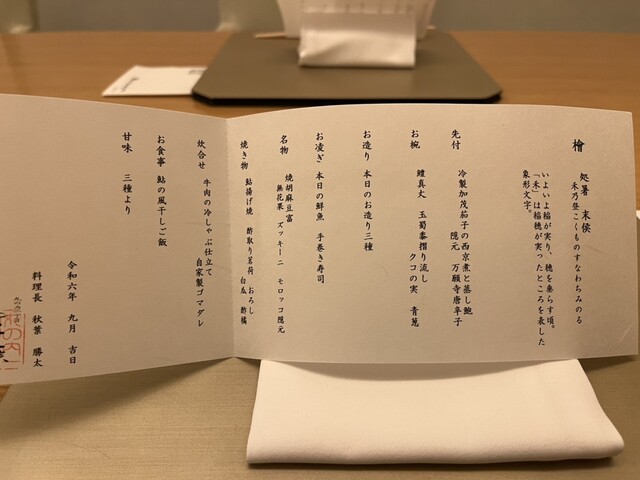 檜
処暑 末侯
禾乃登こくものすなわちみのる
いよいよ稲が実り、穂を垂らす頃。
「禾」は稲穂が実ったところを表した
象形文字。
先付 冷製加茂茄子の西京煮と蒸し鮑
隠元 万願寺唐辛子
お椀 鱧真丈 玉蜀黍摺り流し
クコの実 青葱
お造り 本日のお造り三種
お凌ぎ 本日の鮮魚 手巻き寿司
名物 焼胡麻豆富
無花果 ズッキーニ モロッコ隠元
焼き物 鮎揚げ焼 酢取り茗荷 おろし
白瓜 酢橘
炊合せ 牛肉の冷しゃぶ仕立て
自家製ゴマダレ
お食事 鮎の風干しご飯
甘味 三種より
令和六年 九月 吉日
料理長 秋葉 勝太